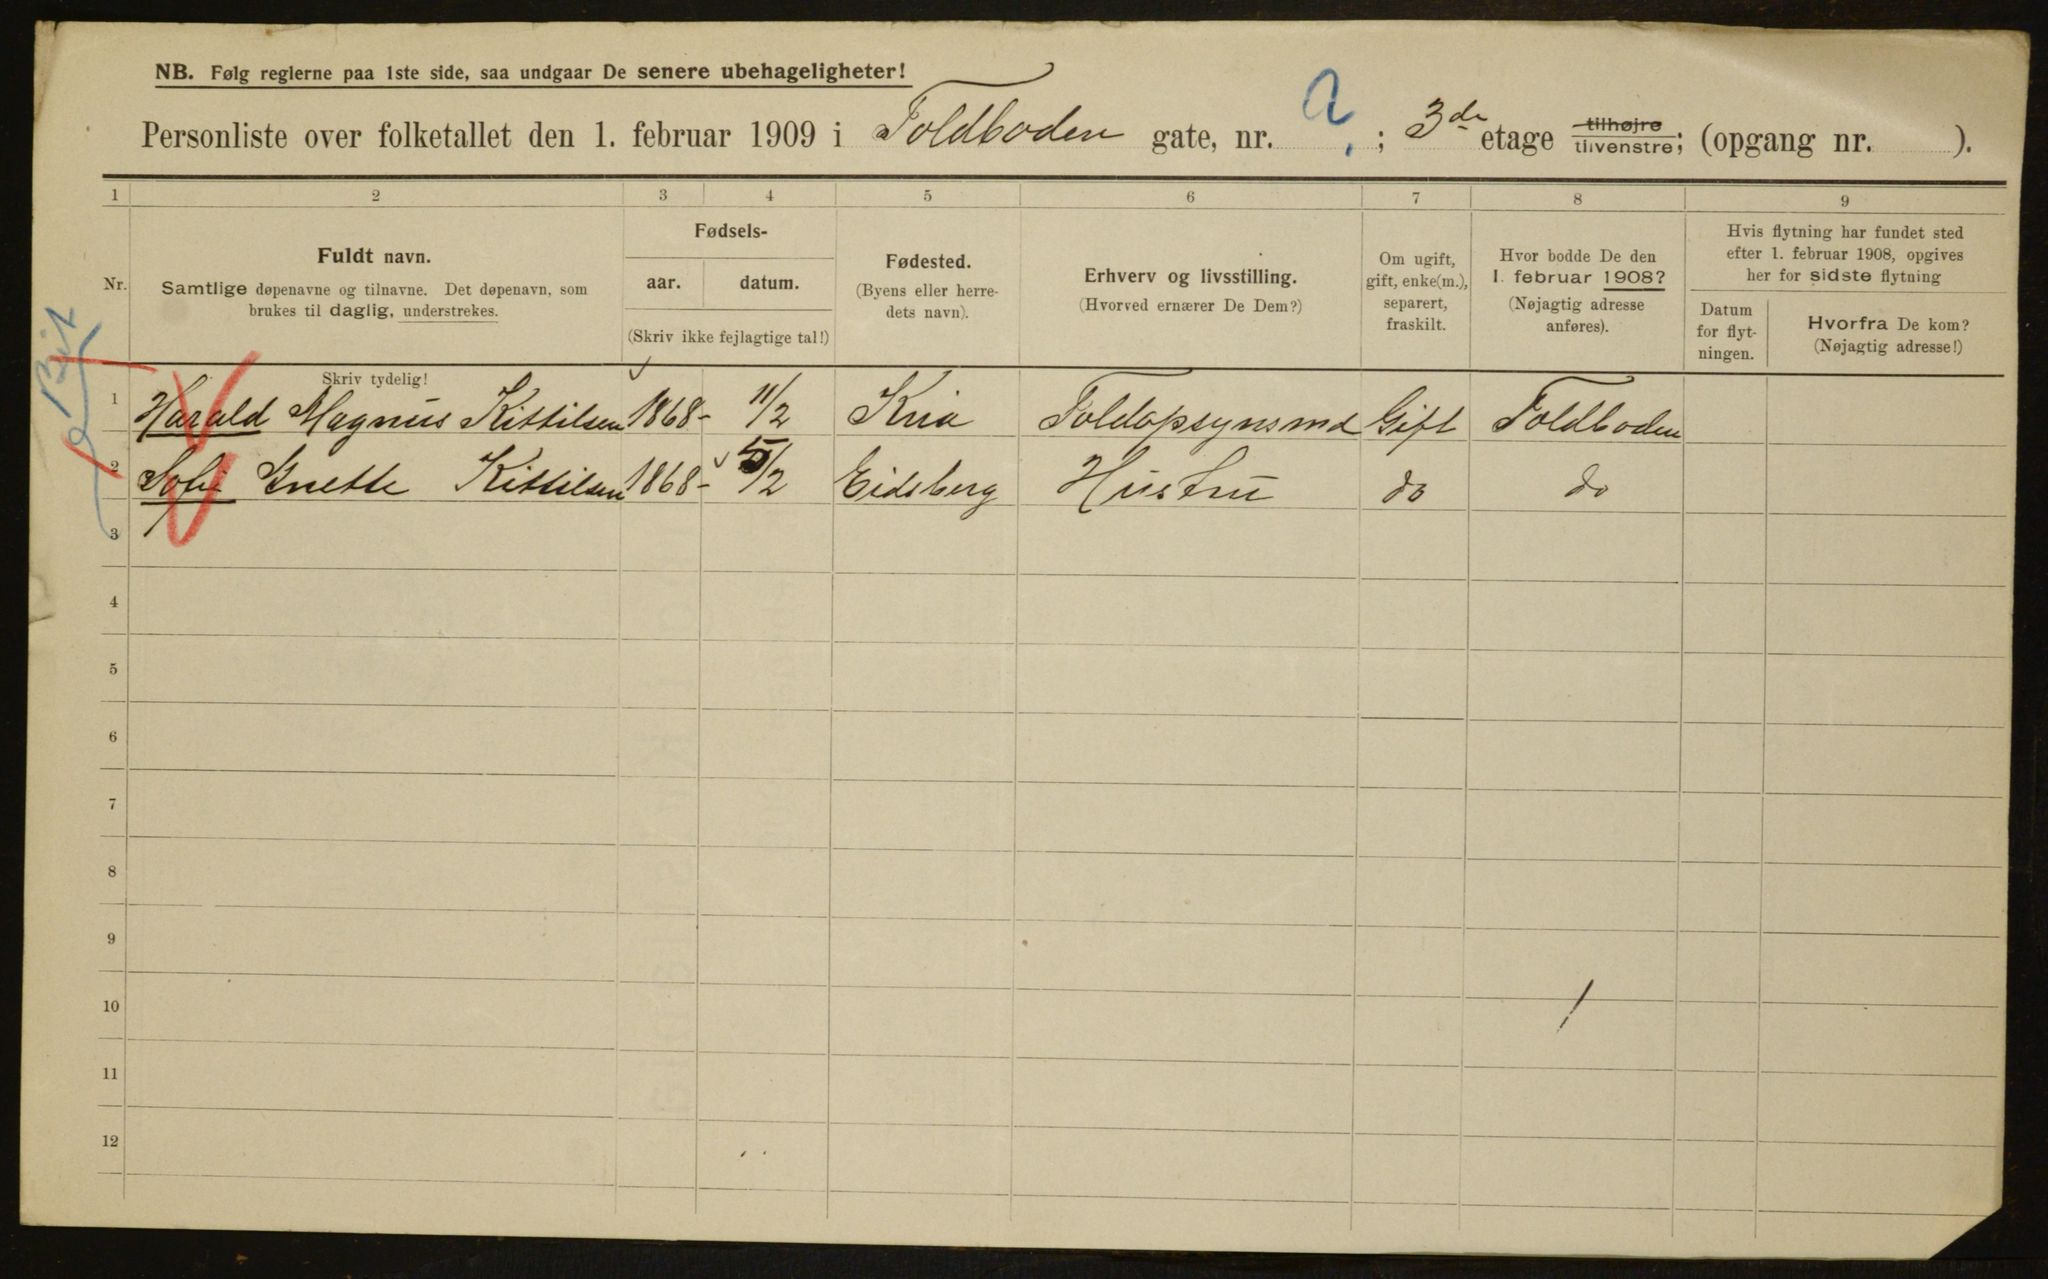 NB. Følg reglerne paa 1ste side, saa undgaar De senere ubehageligheter!
Personliste over folketallet den 1. februar 1909 i Toldboden gate, nr. ; 3de etage tilhøjre tilvenstre; (opgang nr. ).
1 2 3 4 5 6 7 8 9
Nr.
Fuldt navn.
Samtlige døpenavne og tilnavne. Det døpenavn, som
brukes til daglig, understrekes.
Skriv tydelig!
Fødsels-
aar. datum.
(Skriv ikke fejlagtige tal!)
Fødested.
(Byens eller herre-
dets navn).
Erhverv og livsstilling.
(Hvorved ernærer De Dem?)
Om ugift,
gift, enke(m.),
separert,
fraskilt.
Hvor bodde De den
1. februar 1908?
(Nøjagtig adresse
anføres).
Hvis flytning har fundet sted
efter 1. februar 1908, opgives
her for sidste flytning
Datum
for flyt-
ningen.
Hvorfra De kom?
(Nøjagtig adresse!)
1 Harald Magnus Kittilsen 1868- 11/2 Kria Toldopsynsmd Gift Toldboden
2 Sofie Gnette Kittilsen 1868- 5/2 Eidsberg Hustru do do
3
4
5
6
7
8
9
10
11
12